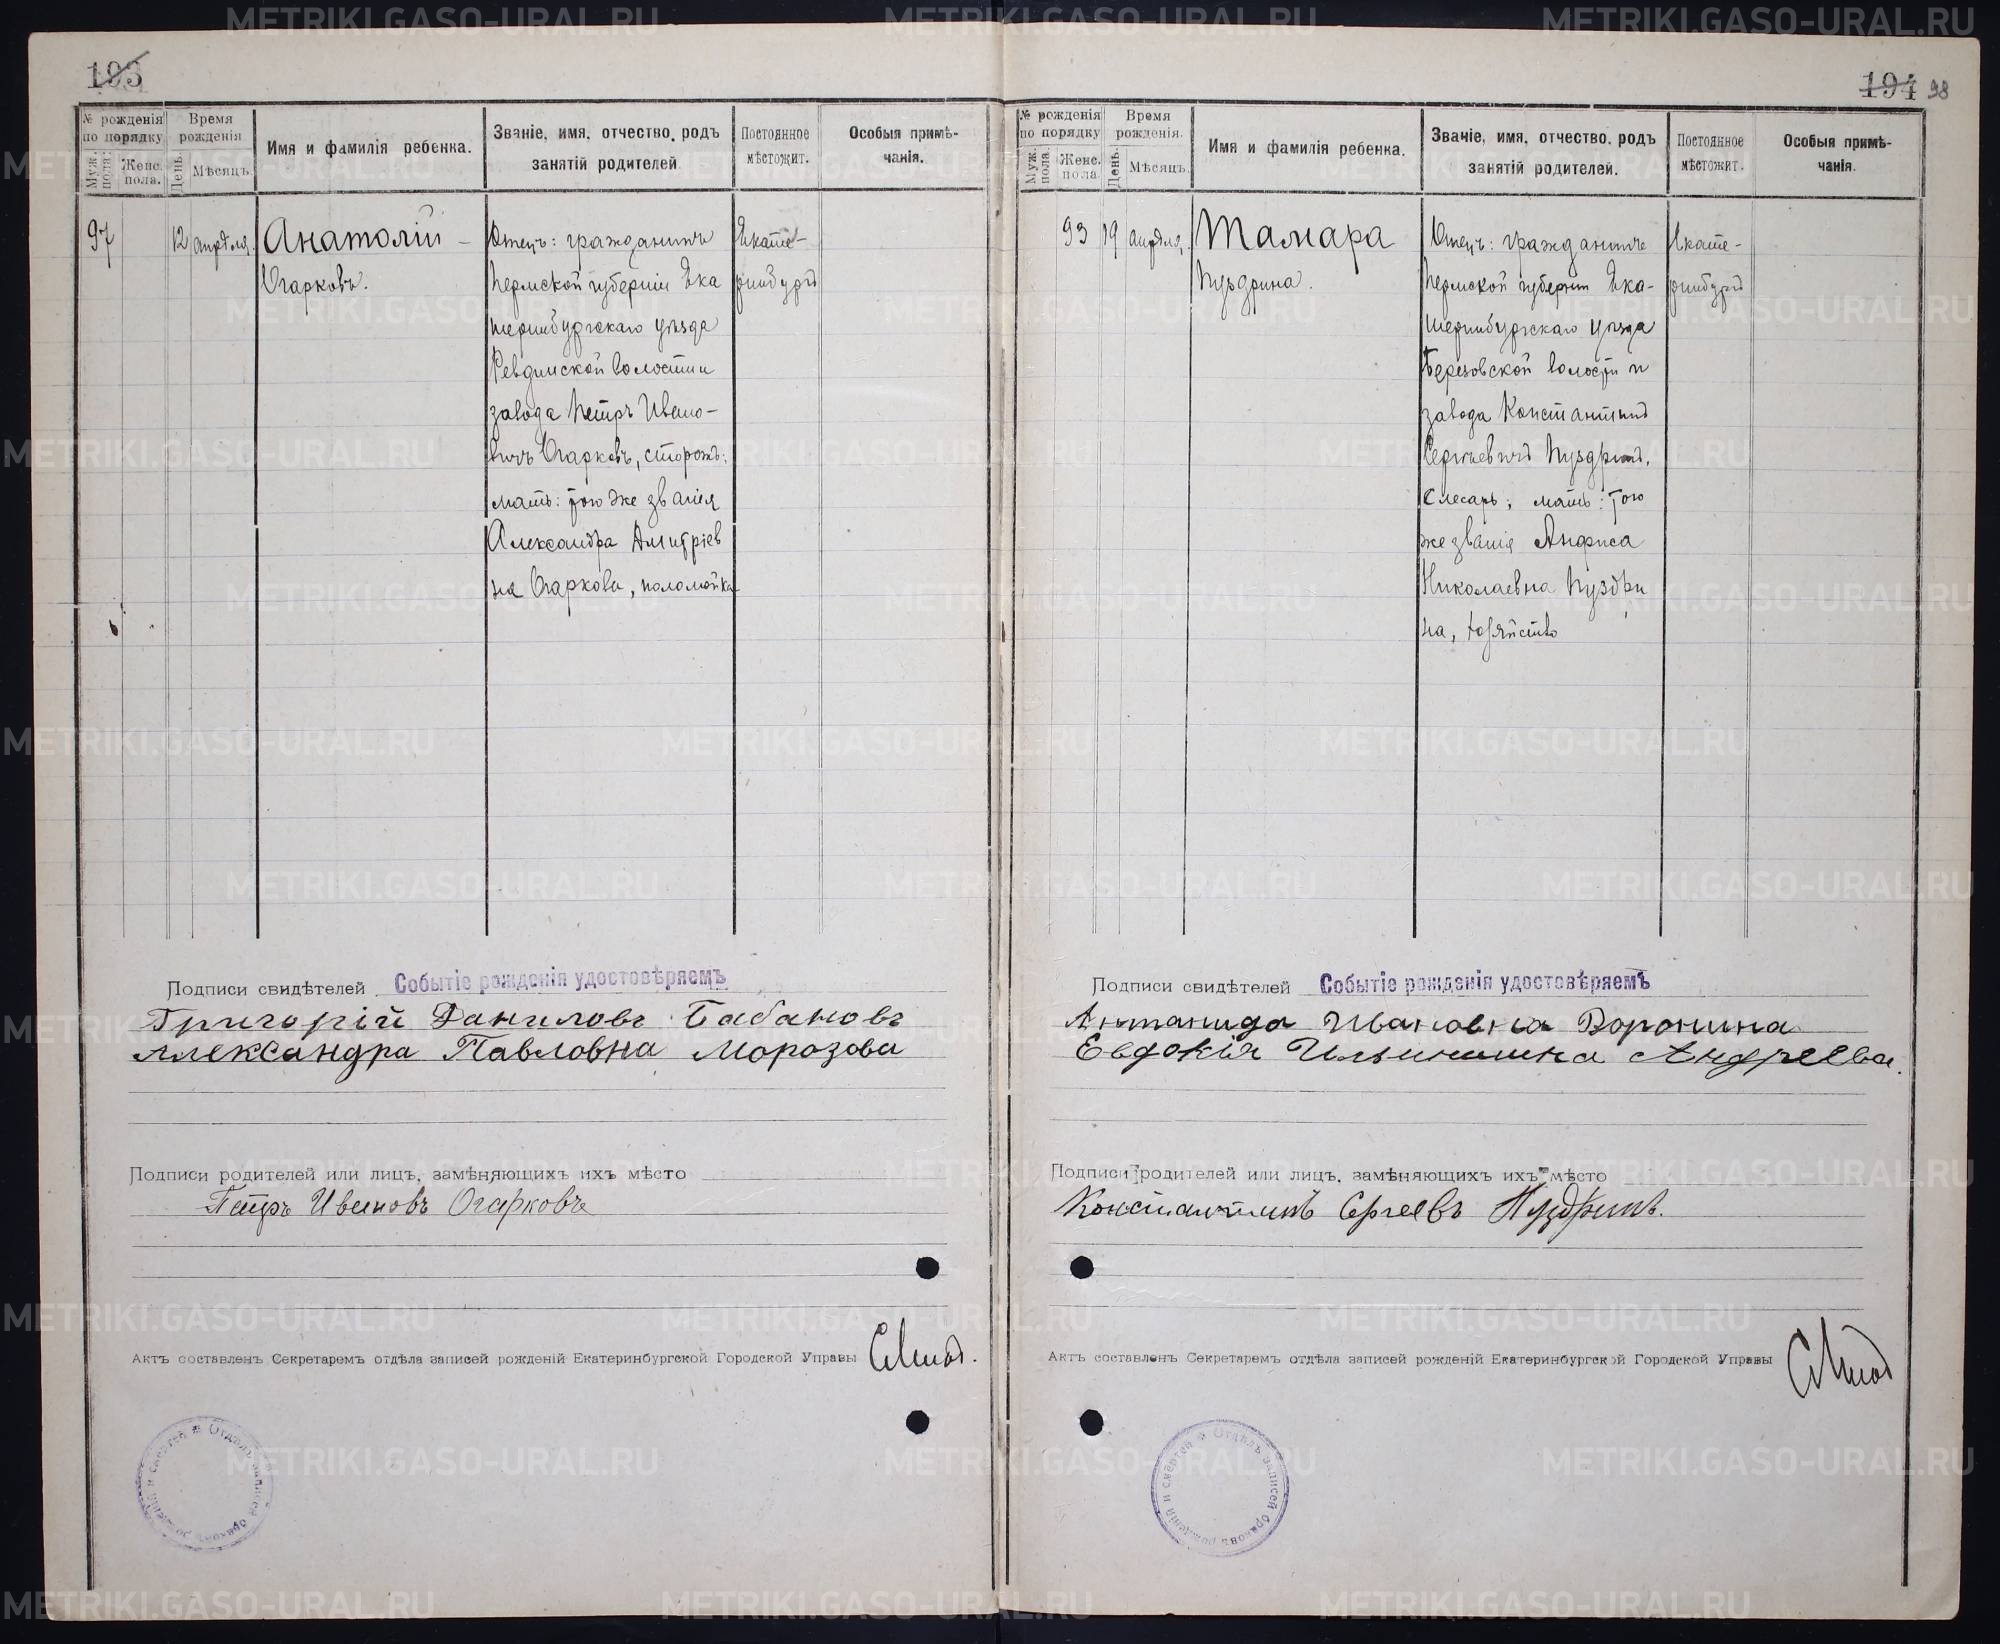 193
№ рожденія по порядку
Муж. пола.
Женс. пола.
Время рожденія
День.
Мѣсяцъ.
Имя и фамилія ребенка.
Званіе, имя, отчество, родъ занятій родителей.
Постоянное мѣстожит.
Особыя примѣчанія.
97
12
апрѣля.
Анатолій
Огарковъ.
Отецъ: гражданинъ
Пермской губерніи Ека
теринбургскаго уѣзда
Ревдинской волости и
завода Петръ Ивано-
вичъ Огарковъ, сторожъ;
мать: того же званія
Александра Дмитріев
на Огаркова, поломойка
Екате-
ринбургъ
Подписи свидѣтелей Событіе рожденія удостовѣряемъ
Григорій Даниловъ Бабановъ
Александра Павловна Морозова
Подписи родителей или лицъ, замѣняющихъ ихъ мѣсто
Петръ Ивановъ Огарковъ
Актъ составленъ Секретаремъ отдѣла записей рожденій Екатеринбургской Городской Управы
Отдѣлъ записей браковъ рожденій и смертей
194 98
№ рожденія по порядку
Муж. пола.
Женс. пола
Время рожденія.
День.
Мѣсяцъ.
Имя и фамилія ребенка.
Званіе, имя, отчество, родъ занятій родителей.
Постоянное мѣстожит.
Особыя примѣчанія.
93
19
апрѣля,
Тамара
Пуздрина.
Отецъ: гражданинъ
Пермской губерніи Ека-
теринбургскаго уѣзда
Березовской волости и
завода Константинъ
Сергѣевичъ Пуздринъ,
слесарь; мать: того
же званія Анфиса
Николаевна Пуздри
на, хозяйство
Екате-
ринбургъ
Подписи свидѣтелей Событіе рожденія удостовѣряемъ
Антанида Ивановна Воронина
Евдокія Ильинишна Андреева.
Подписи родителей или лицъ, замѣняющихъ ихъ мѣсто
Константинъ Сргеевъ Пуздринъ.
Актъ составленъ Секретаремъ отдѣла записей рожденій Екатеринбургской Городской Управы
Отдѣлъ записей браковъ рожденій и смертей
METRIKI.GASO-URAL.RU